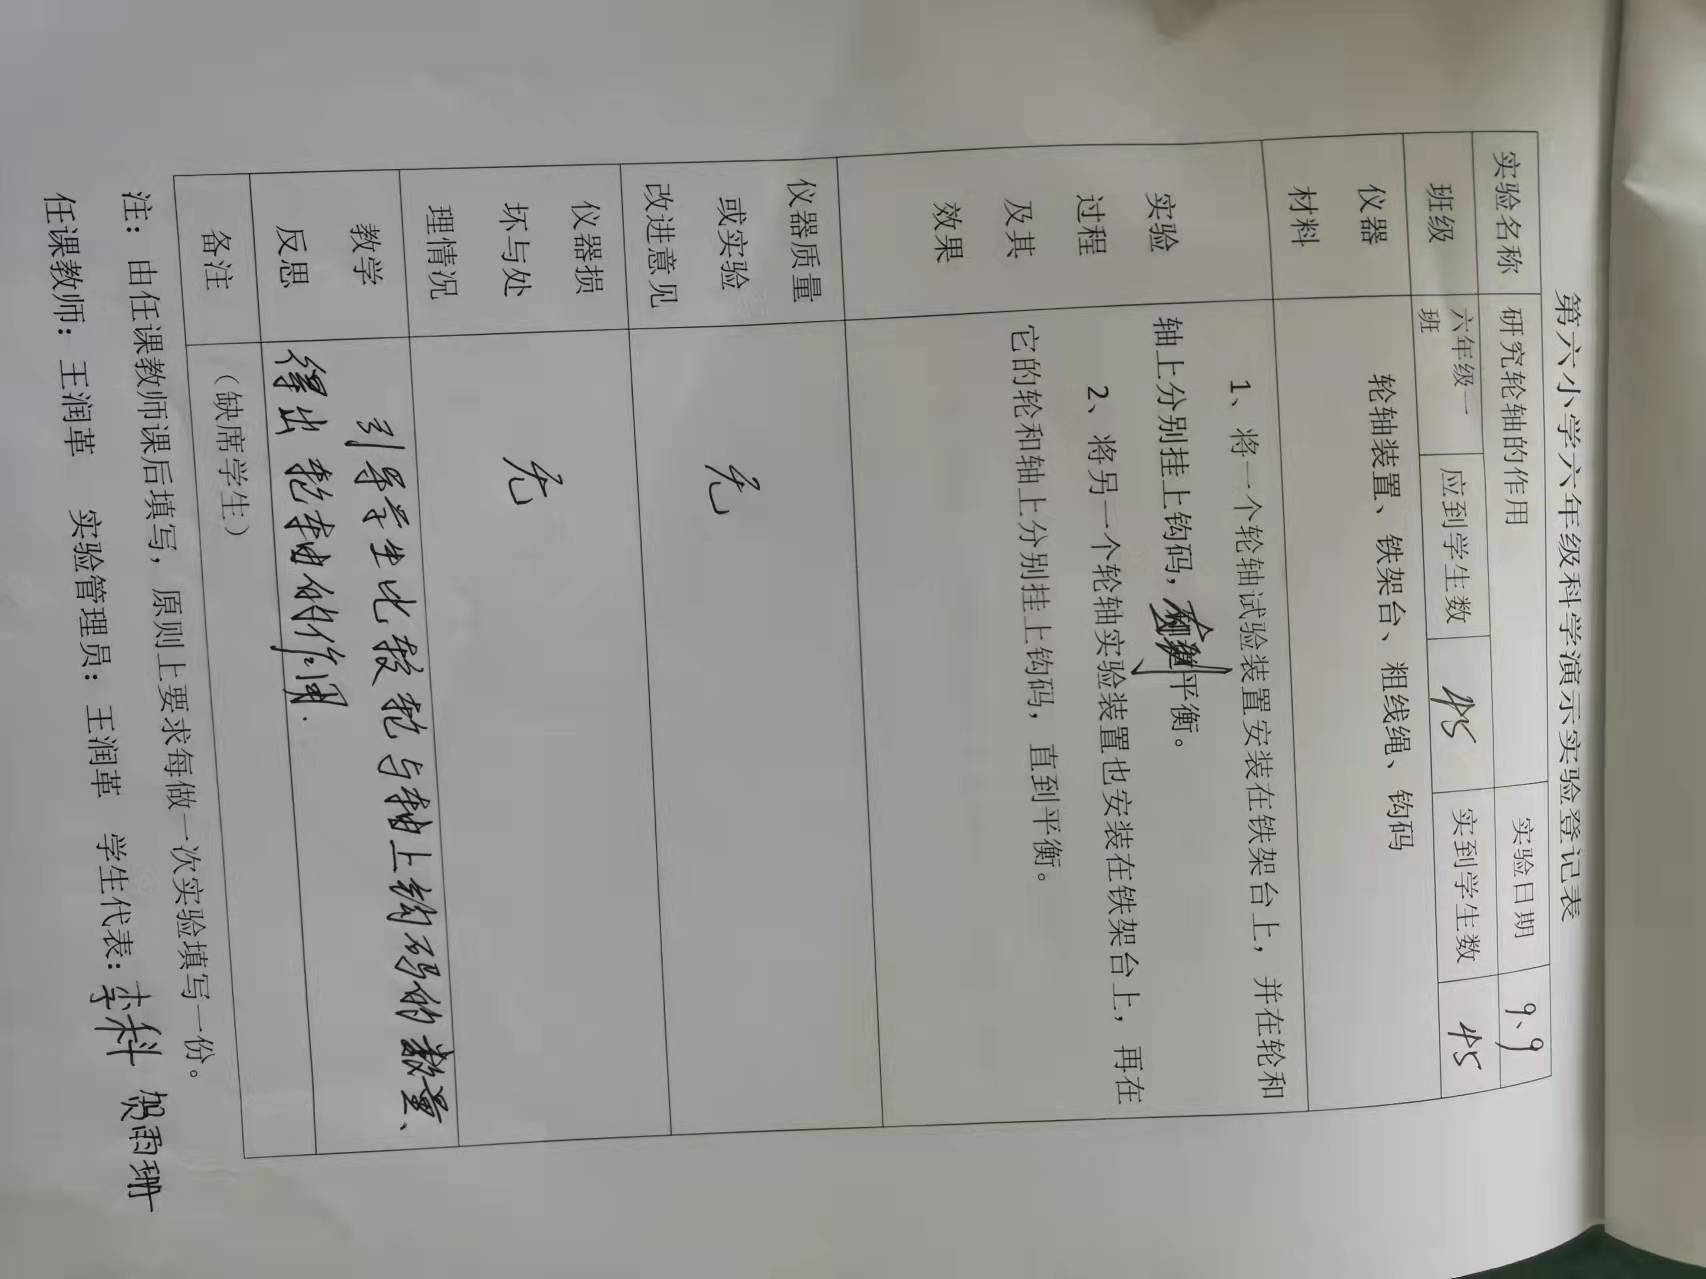 第六小学六年级科学演示实验登记表
实验名称 研究轮轴的作用 实验日期 9、9
班级 六年级一班 应到学生数 45 实到学生数 45
仪器
材料
轮轴装置、铁架台、粗线绳、钩码
实验
过程
及其
效果
1、将一个轮轴试验装置安装在铁架台上，并在轮和
轴上分别挂上钩码，平衡。
2、将另一个轮轴实验装置也安装在铁架台上，再在
它的轮和轴上分别挂上钩码，直到平衡。
仪器质量
或实验
改进意见
无
仪器损
坏与处
理情况
无
教学
反思
引导学生比较轮与轴上钩码的数量、
得出轮轴的作用.
备注 （缺席学生）
注：由任课教师课后填写，原则上要求每做一次实验填写一份。
任课教师：王润革 实验管理员：王润革 学生代表：李科 贺雨珊